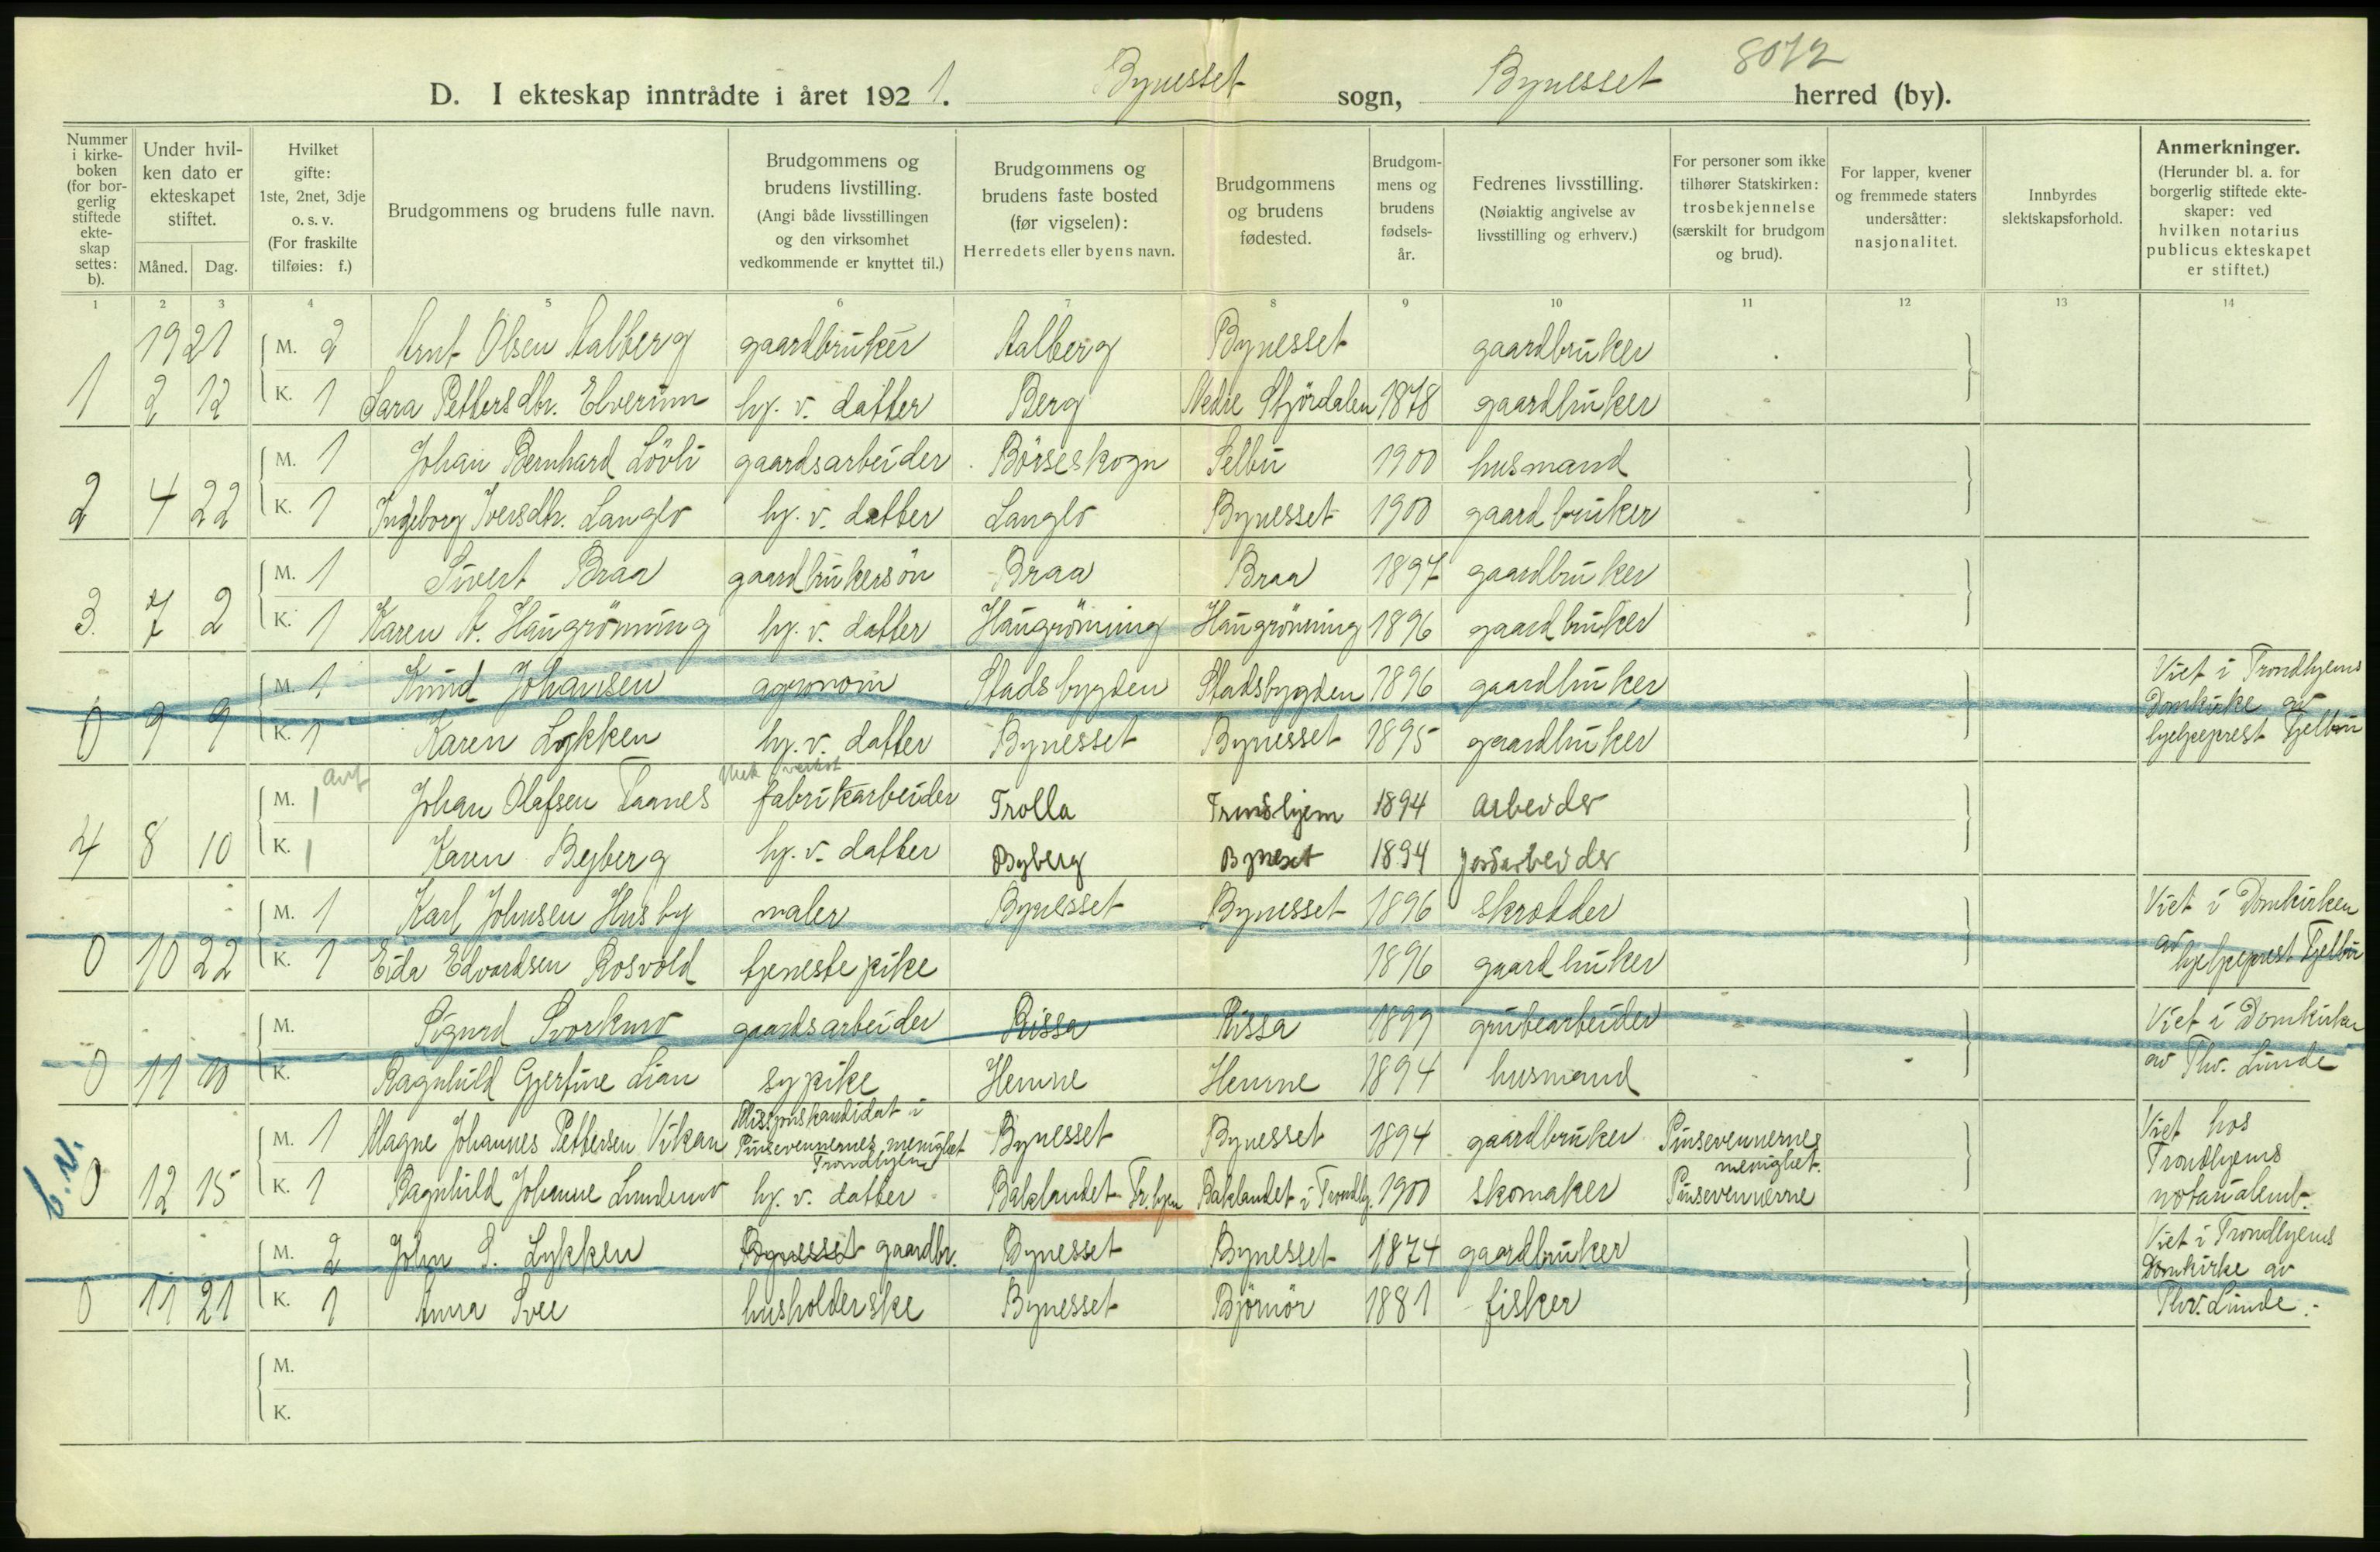 8072
D. I ekteskap inntrådte i året 1921. Bynesset sogn, Bynesset herred (by).
Nummer i kirkeboken (for borgerlig stiftede ekteskap settes: b).
Under hvilken dato er ekteskapet stiftet.
Måned. Dag.
Hvilket gifte: 1ste, 2net, 3dje o. s. v. (For fraskilte tilføies: f.)
Brudgommens og brudens fulle navn.
Brudgommens og brudens livstilling. (Angi både livsstillingen og den virksomhet vedkommende er knyttet til.)
Brudgommens og brudens faste bosted (før vigselen): Herredets eller byens navn.
Brudgommens og brudens fødested.
Brudgommens og brudens fødselsår.
Fedrenes livsstilling. (Nøiaktig angivelse av livsstilling og erhverv.)
For personer som ikke tilhører Statskirken: trosbekjennelse (særskilt for brudgom og brud).
For lapper, kvener og fremmede staters undersåtter: nasjonalitet.
Innbyrdes slektskapsforhold.
Anmerkninger. (Herunder bl. a. for borgerlig stiftede ekteskaper: ved hvilken notarius publicus ekteskapet er stiftet.)
1 2 3 4 5 6 7 8 9 10 11 12 13 14
1921 M. 2 Arnt Olsen Aalberg gaardbruker Aalberg Bynesset gaardbruker
1 2 12 K. 1 Sara Pettersdtr. Elverum hj. v. datter Berg Nedre Stjördalen 1878 gaardbruker
M. 1 Johan Bernhard Lövli gaardsarbeider Börseskogn Selbu 1900 husmand
2 4 22 K. 1 Ingeborg Iversdtr. Langlo hj. v. datter Langlo Bynesset 1900 gaardbruker
M. 1 Sivert Braa gaardbrukersön Braa Braa 1897 gaardbruker
3. 7 2 K. 1 Karen A. Haugrönning hj. v. datter Haugrönning Haugrönning 1896 gaardbruker
M. 1 Knud Johansen agronom Stadsbygden Stadsbygden 1896 gaardbruker Viet i Trondhjems
Domkirke av
0 9 9 K. 1 Karen Lykken hj. v. datter Bynesset Bynesset 1895 gaardbruker hjelpeprest Fjelbu
avt Mek verkst
M. 1 Johan Olafsen Taanes fabrikarbeider Trolla Trondhjem 1894 arbeider
4 8 10 K. 1 Karen Byberg hj. v. datter Byberg Byneset 1894 jordarbeider
M. 1 Karl Johnsen Husby maler Bynesset Bynesset 1896 skrædder Viet i Domkirken
0 10 22 K. 1 Eida Edvardsen Rosvold tjenestepike 1896 gaardbruker av hjelpeprest Fjelbu
M. Sigurd Svorkmo gaardsarbeider Rissa Rissa 1899 grubearbeider Viet i Domkirken
0 11 10 K. Ragnhild Gjertine Lian sypike Hemne Hemne 1894 husmand av Thv. Linde
Misjonskandidat i
M. 1 Magne Johannes Pettersen Vikan Pinsevennernes menighet Bynesset Bynesset 1894 gaardbruker Pinsevennernes Viet hos
Trondhjem menighet. Trondhjems
b. v. 0 12 15 K. 1 Ragnhild Johanne Lundemo hj. v. datter Baklandet Tr.hjem Baklandet i Trondhj. 1900 skomaker Pinsevennerne notarialemb.
M. 2 John S. Lykken Bynesset gaardbr. Bynesset Bynesset 1874 gaardbruker Viet i Trondhjems
Domkirke av
0 11 21 K. 1 Anna Svee husholderske Bynesset Björnör 1881 fisker Thv. Linde.
M.
K.